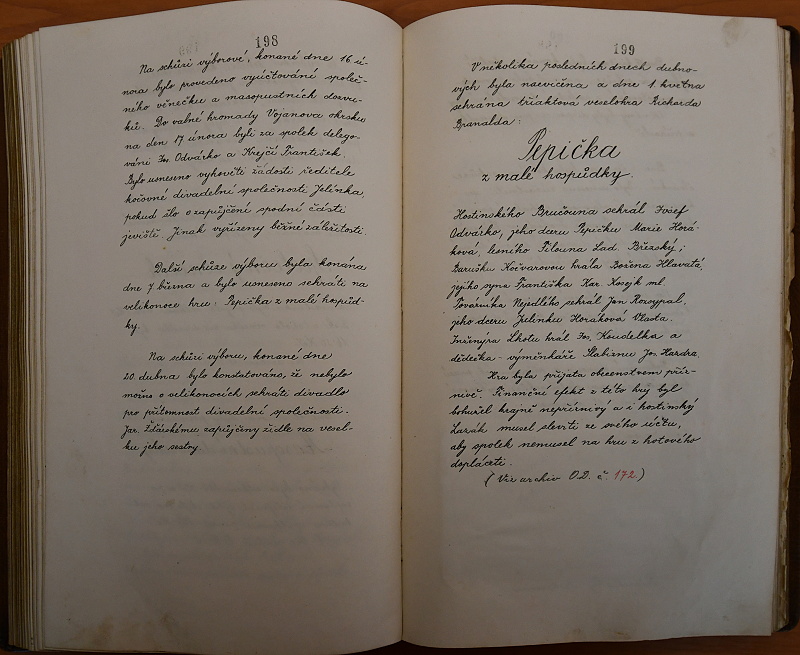 198
Na schůzi výborové, konané dne 16 ú-
nora bylo provedeno vyúčtování společ-
ného věnečku a masopustních dozvu-
ků. Do valné hromady Vojanova okrsku
na den 17 února byli za spolek delego-
váni Jos. Odvárko a Krejčí František.
Bylo usneseno vyhověti žádosti ředitele
kočovné divadelní společnosti Jelínka,
pokud šlo o zapůjčení spodní části
jeviště. Jinak vyřízeny běžné záležitosti.
Další schůze výboru byla konána
dne 7 března a bylo usneseno sehráti na
velikonoce hru: Pepička z malé hospůd-
ky.
Na schůzi výboru, konané dne
20. dubna bylo konstatováno, že nebylo
možno o velikonocích sehráti divadlo
pro přítomnost divadelní společnosti.
Jar. Žďárskému zapůjčeny židle na vesel-
ku jeho sestry
199
V několika posledních dnech dubno-
vých byla nacvičena a dne 1 května
sehrána tříaktová veselohra Richarda
Branalda:
Pepička
z malé hospůdky.
Hostinského Bručouna sehrál Josef
Odvárko, jeho dceru Pepičku Marie Horá-
ková, lesního Filouna Lad. Březský;
Barušku Kočvarovou hrála Božena Hlavatá,
jejího syna Františka Kar. Kosejk ml.
Továrníka Nejedlého sehrál Jan Rozsypal,
jeho dceru Jelinku Horáková Vlasta.
Inženýra Lhotu hrál Jos. Koudelka a
dědečka - výměnkáře Slabinu Jos. Hazdra.
Hra byla přijata obecenstvem příz-
nivě. Finanční efekt z této hry byl
bohužel krajně nepříznivý a i hostinský
Lazák musel sleviti ze svého účtu,
aby spolek nemusel na hru z hotového
dopláceti.
(Viz archiv O.D. č. 172.)